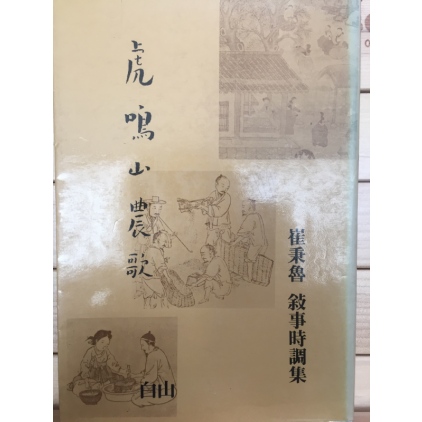 虎鳴山農歌
崔秉魯 敍事時調集
自山